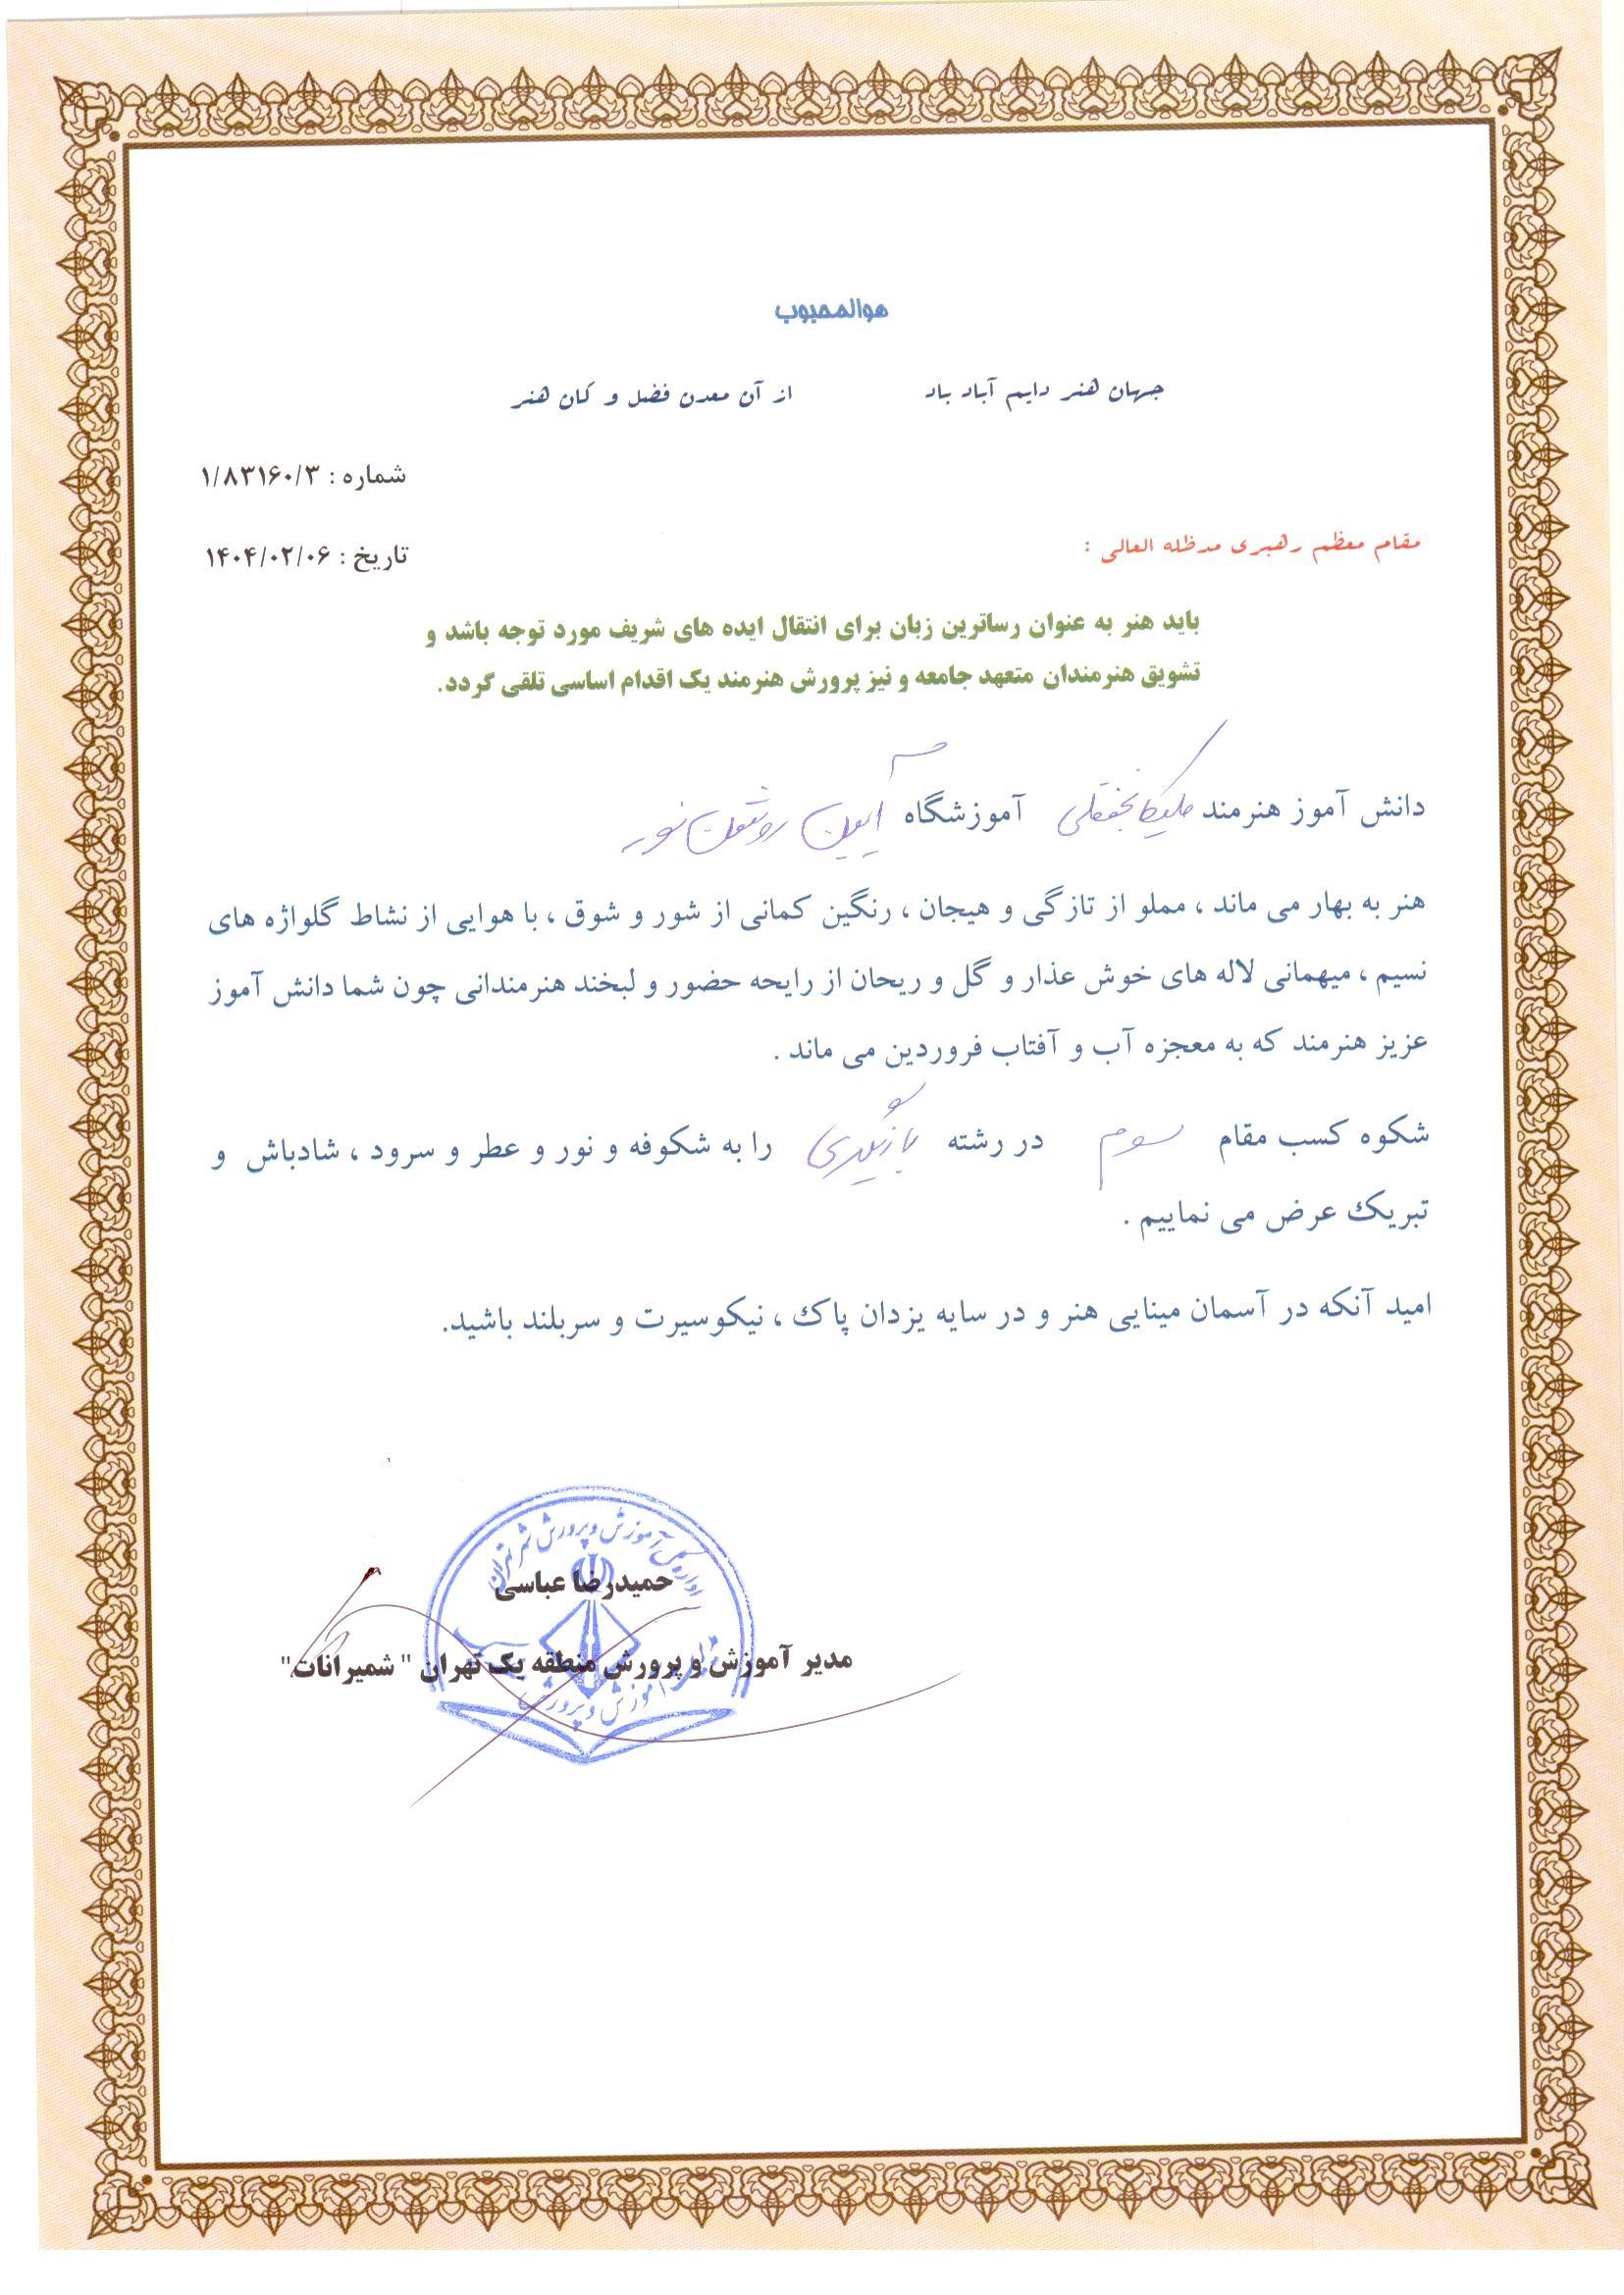 هوالمحبوب
جهان هنر دایم آباد باد از آن معدن فضل و کان هنر
شماره : ۱/۸۳۱۶۰/۳
مقام معظم رهبری مدظله العالی :
تاریخ : ۱۴۰۴/۰۲/۰۶
باید هنر به عنوان رساترین زبان برای انتقال ایده های شریف مورد توجه باشد و
تشویق هنرمندان متعهد جامعه و نیز پرورش هنرمند یک اقدام اساسی تلقی گردد.
دانش آموز هنرمند ملیکا نجفقلی آموزشگاه آیین روشن نور
هنر به بهار می ماند ، مملو از تازگی و هیجان ، رنگین کمانی از شور و شوق ، با هوایی از نشاط گلواژه های
نسیم ، میهمانی لاله های خوش عذار و گل و ریحان از رایحه حضور و لبخند هنرمندانی چون شما دانش آموز
عزیز هنرمند که به معجزه آب و آفتاب فروردین می ماند .
شکوه کسب مقام سوم در رشته بازیگری را به شکوفه و نور و عطر و سرود ، شادباش و
تبریک عرض می نماییم .
امید آنکه در آسمان مینایی هنر و در سایه یزدان پاک ، نیکوسیرت و سربلند باشید.
اداره کل آموزش و پرورش شهر تهران
حمیدرضا عباسی
مدیر آموزش و پرورش منطقه یک تهران " شمیرانات"
آموزش و پرورش